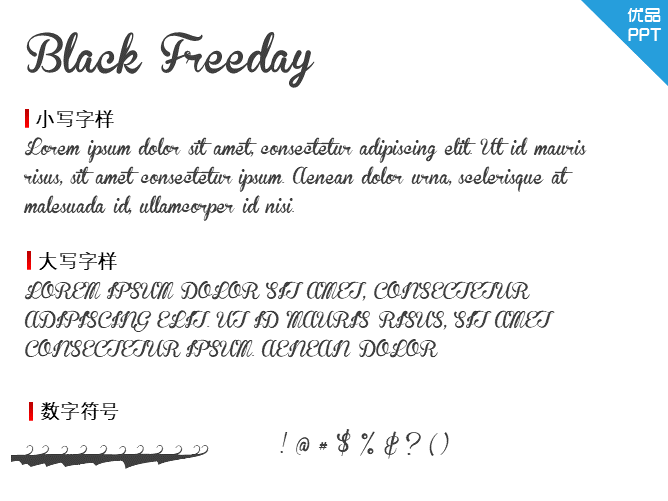 优品
PPT
Black Freeday
小写字样
Lorem ipsum dolor sit amet, consectetur adipiscing elit. Ut id mauris
risus, sit amet consectetur ipsum. Aenean dolor urna, scelerisque at
malesuada id, ullamcorper id nisi.
大写字样
LOREM IPSUM DOLOR SIT AMET, CONSECTETUR
ADIPISCING ELIT. UT ID MAURIS RISUS, SIT AMET
CONSECTETUR IPSUM. AENEAN DOLOR
数字符号
! @ # $ % & ? ( )